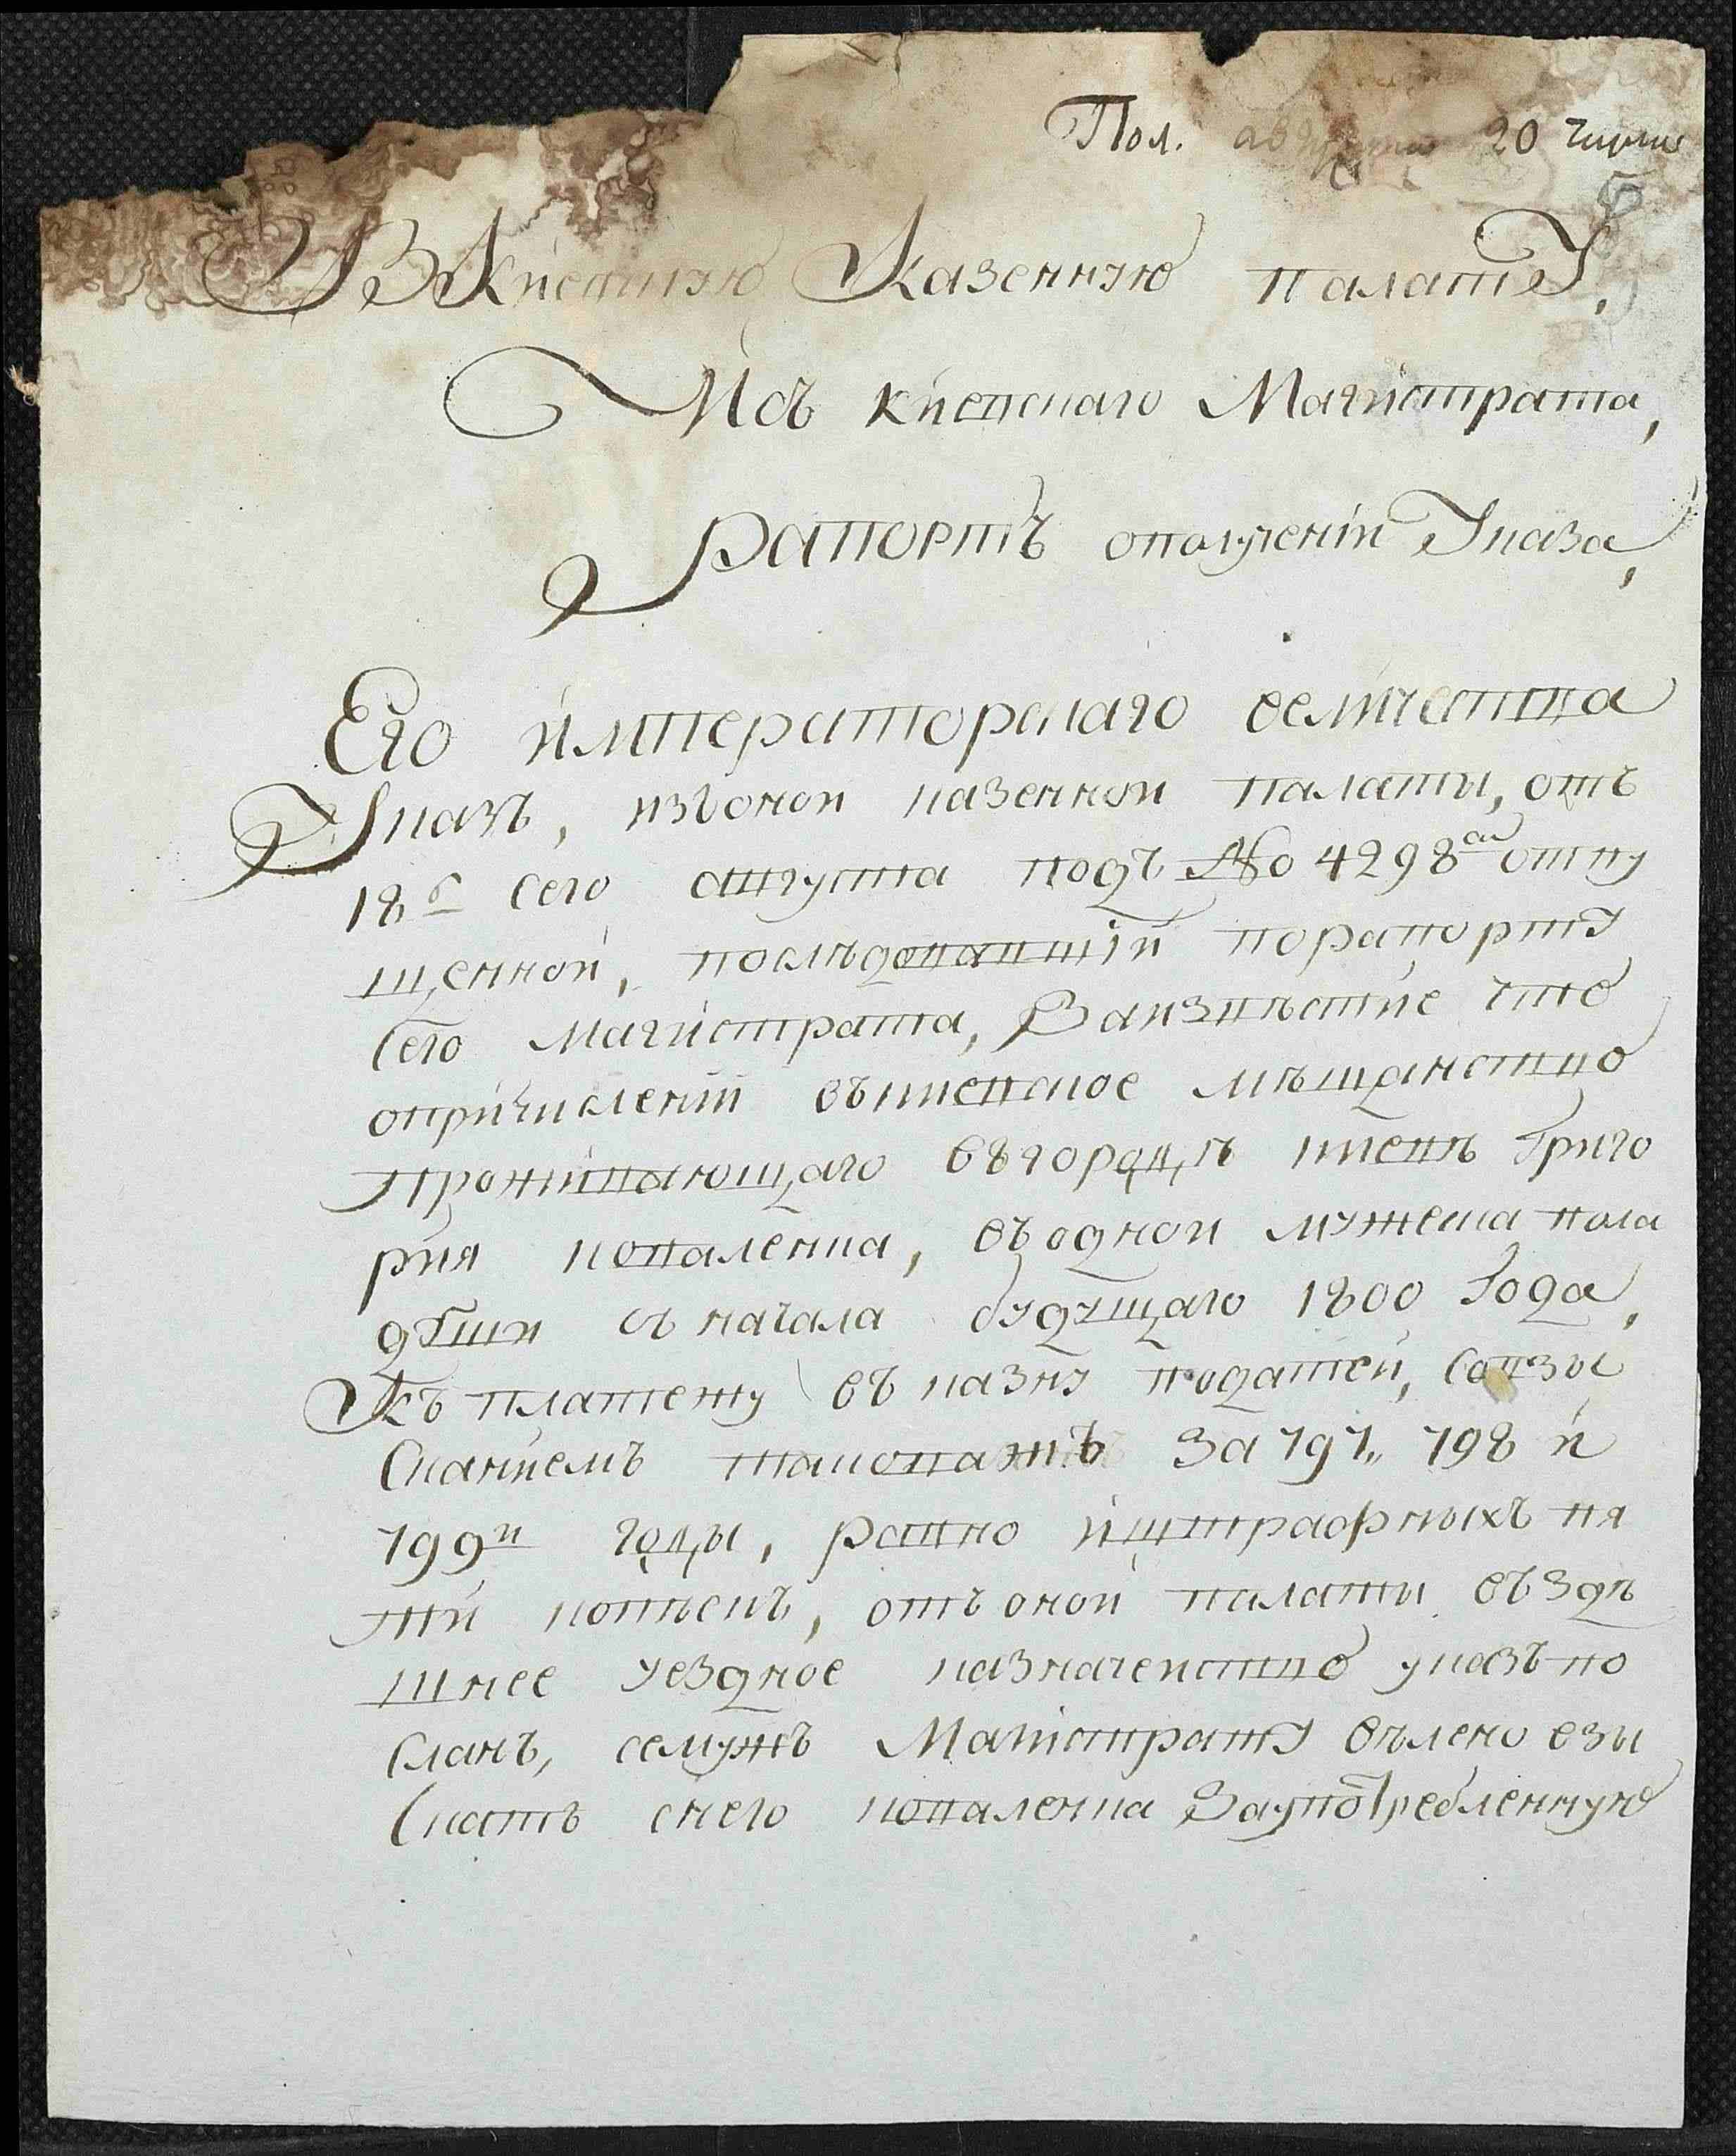 Пол. августа 20 числа
В Киевскую Казенную палату,
Изъ киевскаго Магистрата,
рапортъ ополученіи Указа,
Его императорскаго величества
Указъ, изъоной казенной палаты, отъ
18г сего августа подъ No 4298м отпу
щенной, последовавшій порапорту
сего магистрата, Ваизвѣстие что
опричисленіи вкиевское мѣщанство
проживающаго вътородцѣ киевѣ Григо
рия коваленка, въодной мужеска пола
души съ начала будущаго 1800 Года,
Къ платежу въ казну податей, совзы
сканиемъ таковажъ за 797,, 798 и
799й годы, равно иштрафныхъ пя
ти копѣекъ, отъ оной палаты въздѣ
шнее уездное казначейство указъ по
сланъ, семужъ Магистрату вѣлено взы
скать снего коваленка Заупотребленную